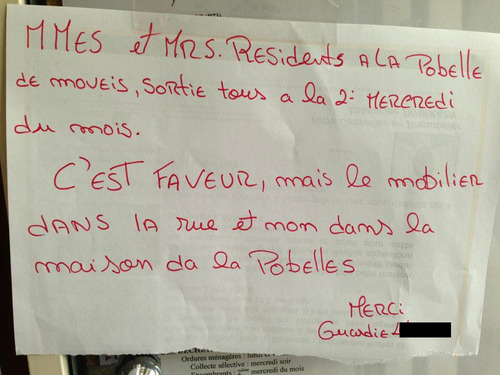 MMES et MRS. Residents A LA Pobelle
de moveis, sortie tous a la 2: Mercredi
du mois.
C'EST FAVEUR, mais le mobilier
DANS LA rue et mon dans la
maison da la Pobelles
Merci
Guardie
Ordures ménagères :
Collecte sélective : mercredi soir
Encombrants : 2ème mercredi du mois